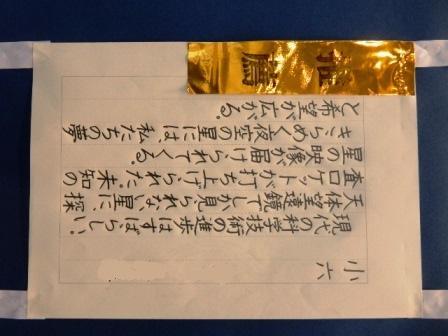 小六
現代の科学技術の進歩はすばらしい。
天体望遠鏡でしか見られない星に、探
査ロケットが打ち上げられた。未知の
星の映像が届けられてくる。
きらめく夜空の星には、私たちの夢
と希望が広がる。
推薦